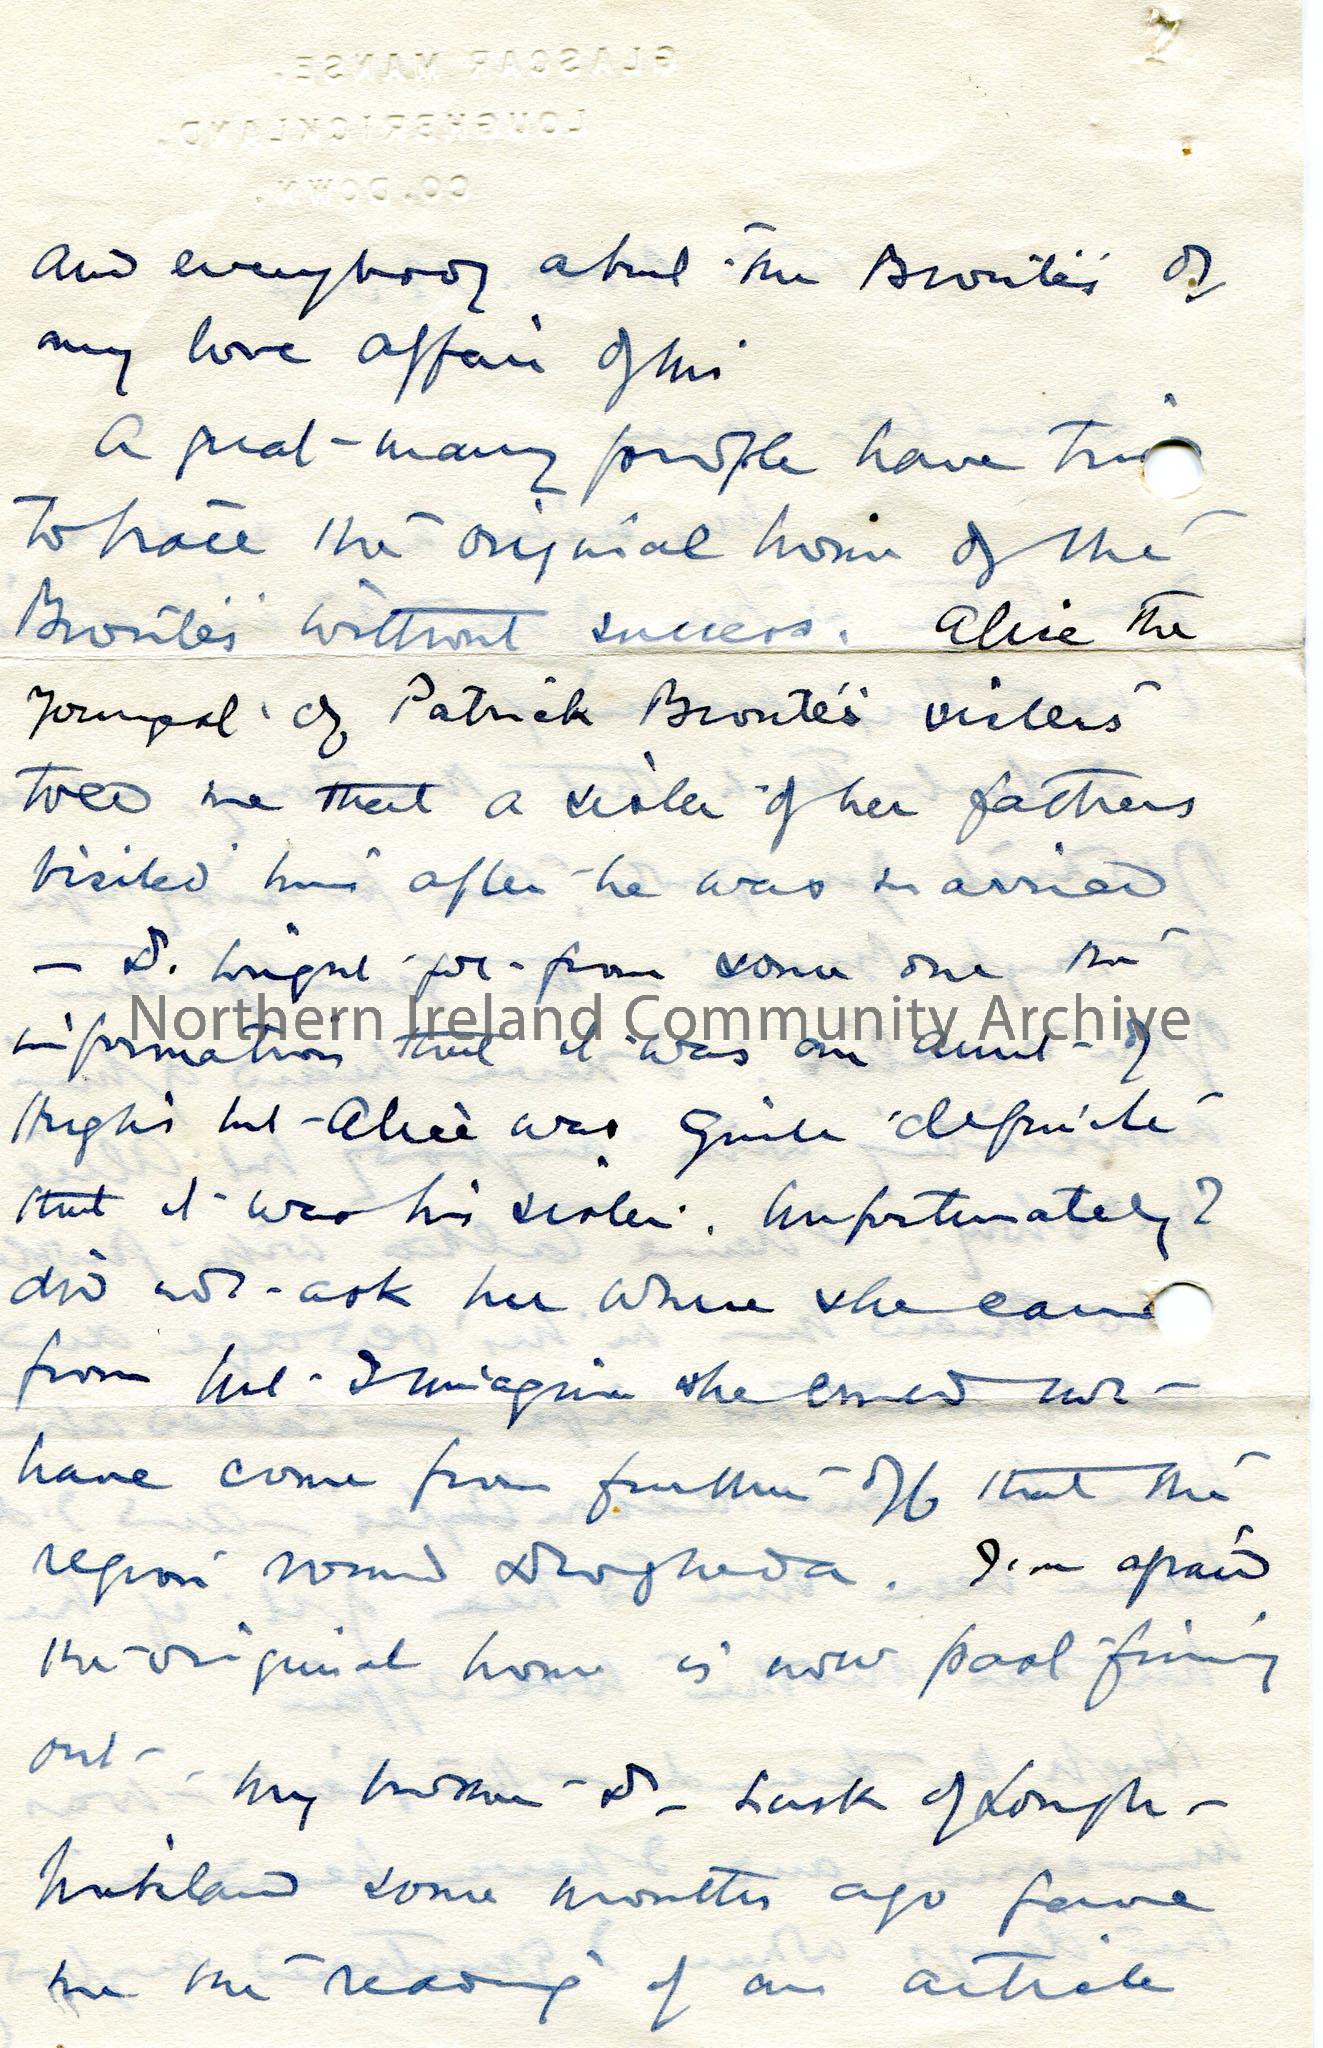 GLASCAR MANSE,
LOUGHBRICKLAND,
CO. DOWN.
and everybody about the Brontë's of
any love affair of his
A great many people have tried
to trace the original home of the
Brontë's without success. Alice the
youngest of Patrick Brontë's sisters
told me that a sister of her fathers
visited him after he was married
— D. Wright got from some one the
information that it was an aunt of
Hugh's but Alice was quite definite
that it was his sister. Unfortunately I
did not ask her where she came
from but I imagine she could not
have come from further off that the
region round Drogheda. I'm afraid
the original home is now past finding
out. My brother D. Lusk of Lough-
brickland some months ago gave
me the reading of an article
Northern Ireland Community Archive